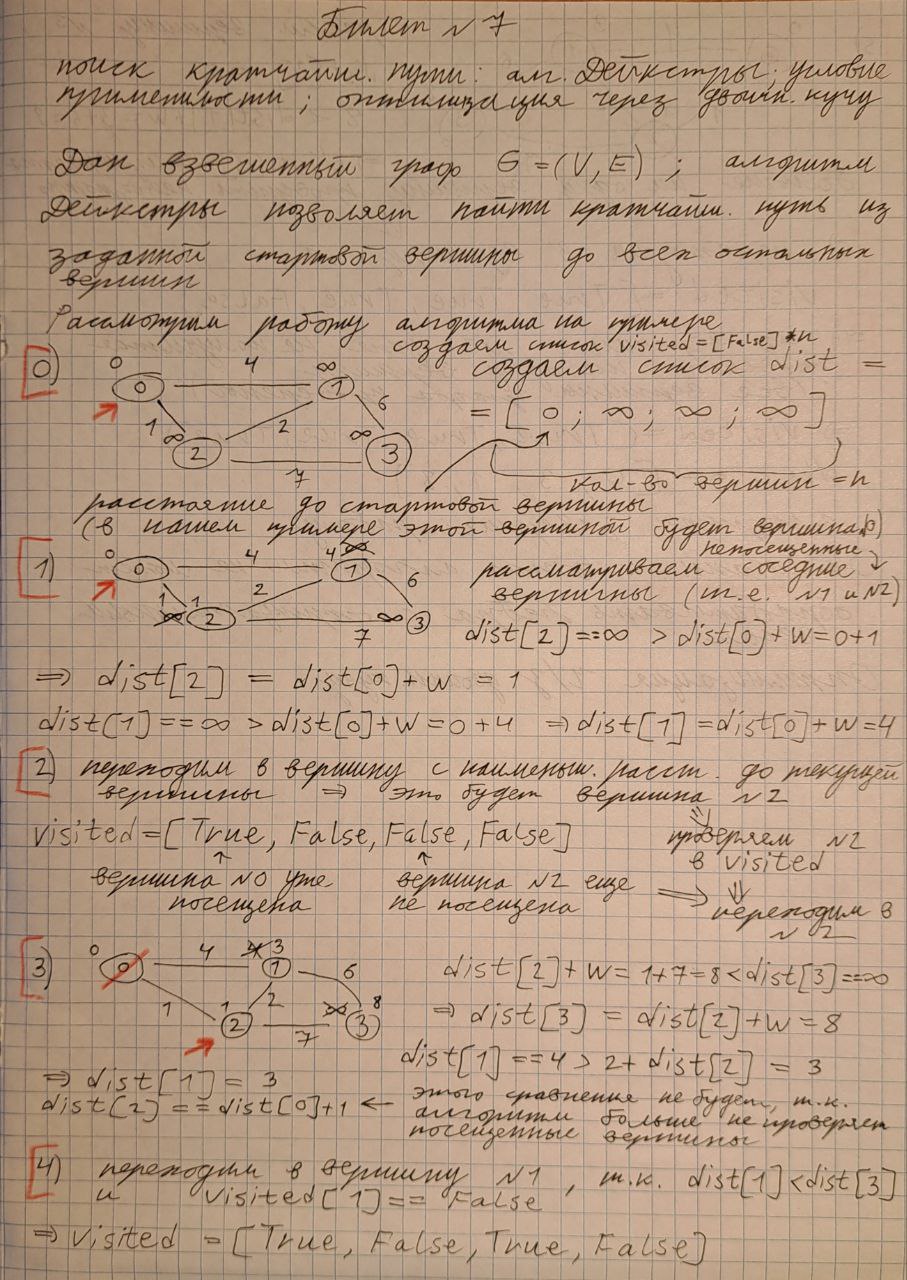 Билет №7
поиск кратчайш. пути: алг. Дейкстры; условие
применимости; оптимизация через двоичн. кучу
Дан взвешенный граф G = (V, E) ; алгоритм
Дейкстры позволяет найти кратчайш. путь из
заданной стартовой вершины до всех остальных
вершин
Рассмотрим работу алгоритма на примере
создаем список visited = [False] * n
0)
0 0 4 ∞ 1
создаем список dist =
1 ∞ 2 2 ∞ 3 6
= [ 0 ; ∞ ; ∞ ; ∞ ]
7
кол-во вершин = n
расстояние до стартовой вершины
(в нашем примере этой вершиной будет вершина 0)
1)
0 0 4 4 ∞ 1
непосещенные
рассматриваем соседние
1 ∞ 1 2 2 ∞ 3 6
вершины (т.е. №1 и №2)
7
dist[2] == ∞ > dist[0] + w = 0+1
⇒ dist[2] = dist[0] + w = 1
dist[1] == ∞ > dist[0] + w = 0 + 4 ⇒ dist[1] = dist[0] + w = 4
2) переходим в вершину с наименьш. расст. до текущей
вершины ⇒ это будет вершина №2
visited = [True, False, False, False]
проверяем №2
в visited
вершина №0 уже
посещена
вершина №2 еще
не посещена
⇒ переходим в
№2
3)
0 0 4 4 3 1
1 1 2 2 7 ∞ 8 3 6
dist[2] + w = 1+7 = 8 < dist[3] == ∞
⇒ dist[3] = dist[2] + w = 8
dist[1] == 4 > 2 + dist[2] = 3
⇒ dist[1] = 3
dist[2] == dist[0] + 1 ← этого сравнения не будет, т.к.
алгоритм больше не проверяет
посещенные вершины
4) переходим в вершину №1 , т.к. dist[1] < dist[3]
и visited[1] == False
⇒ visited = [True, False, True, False]